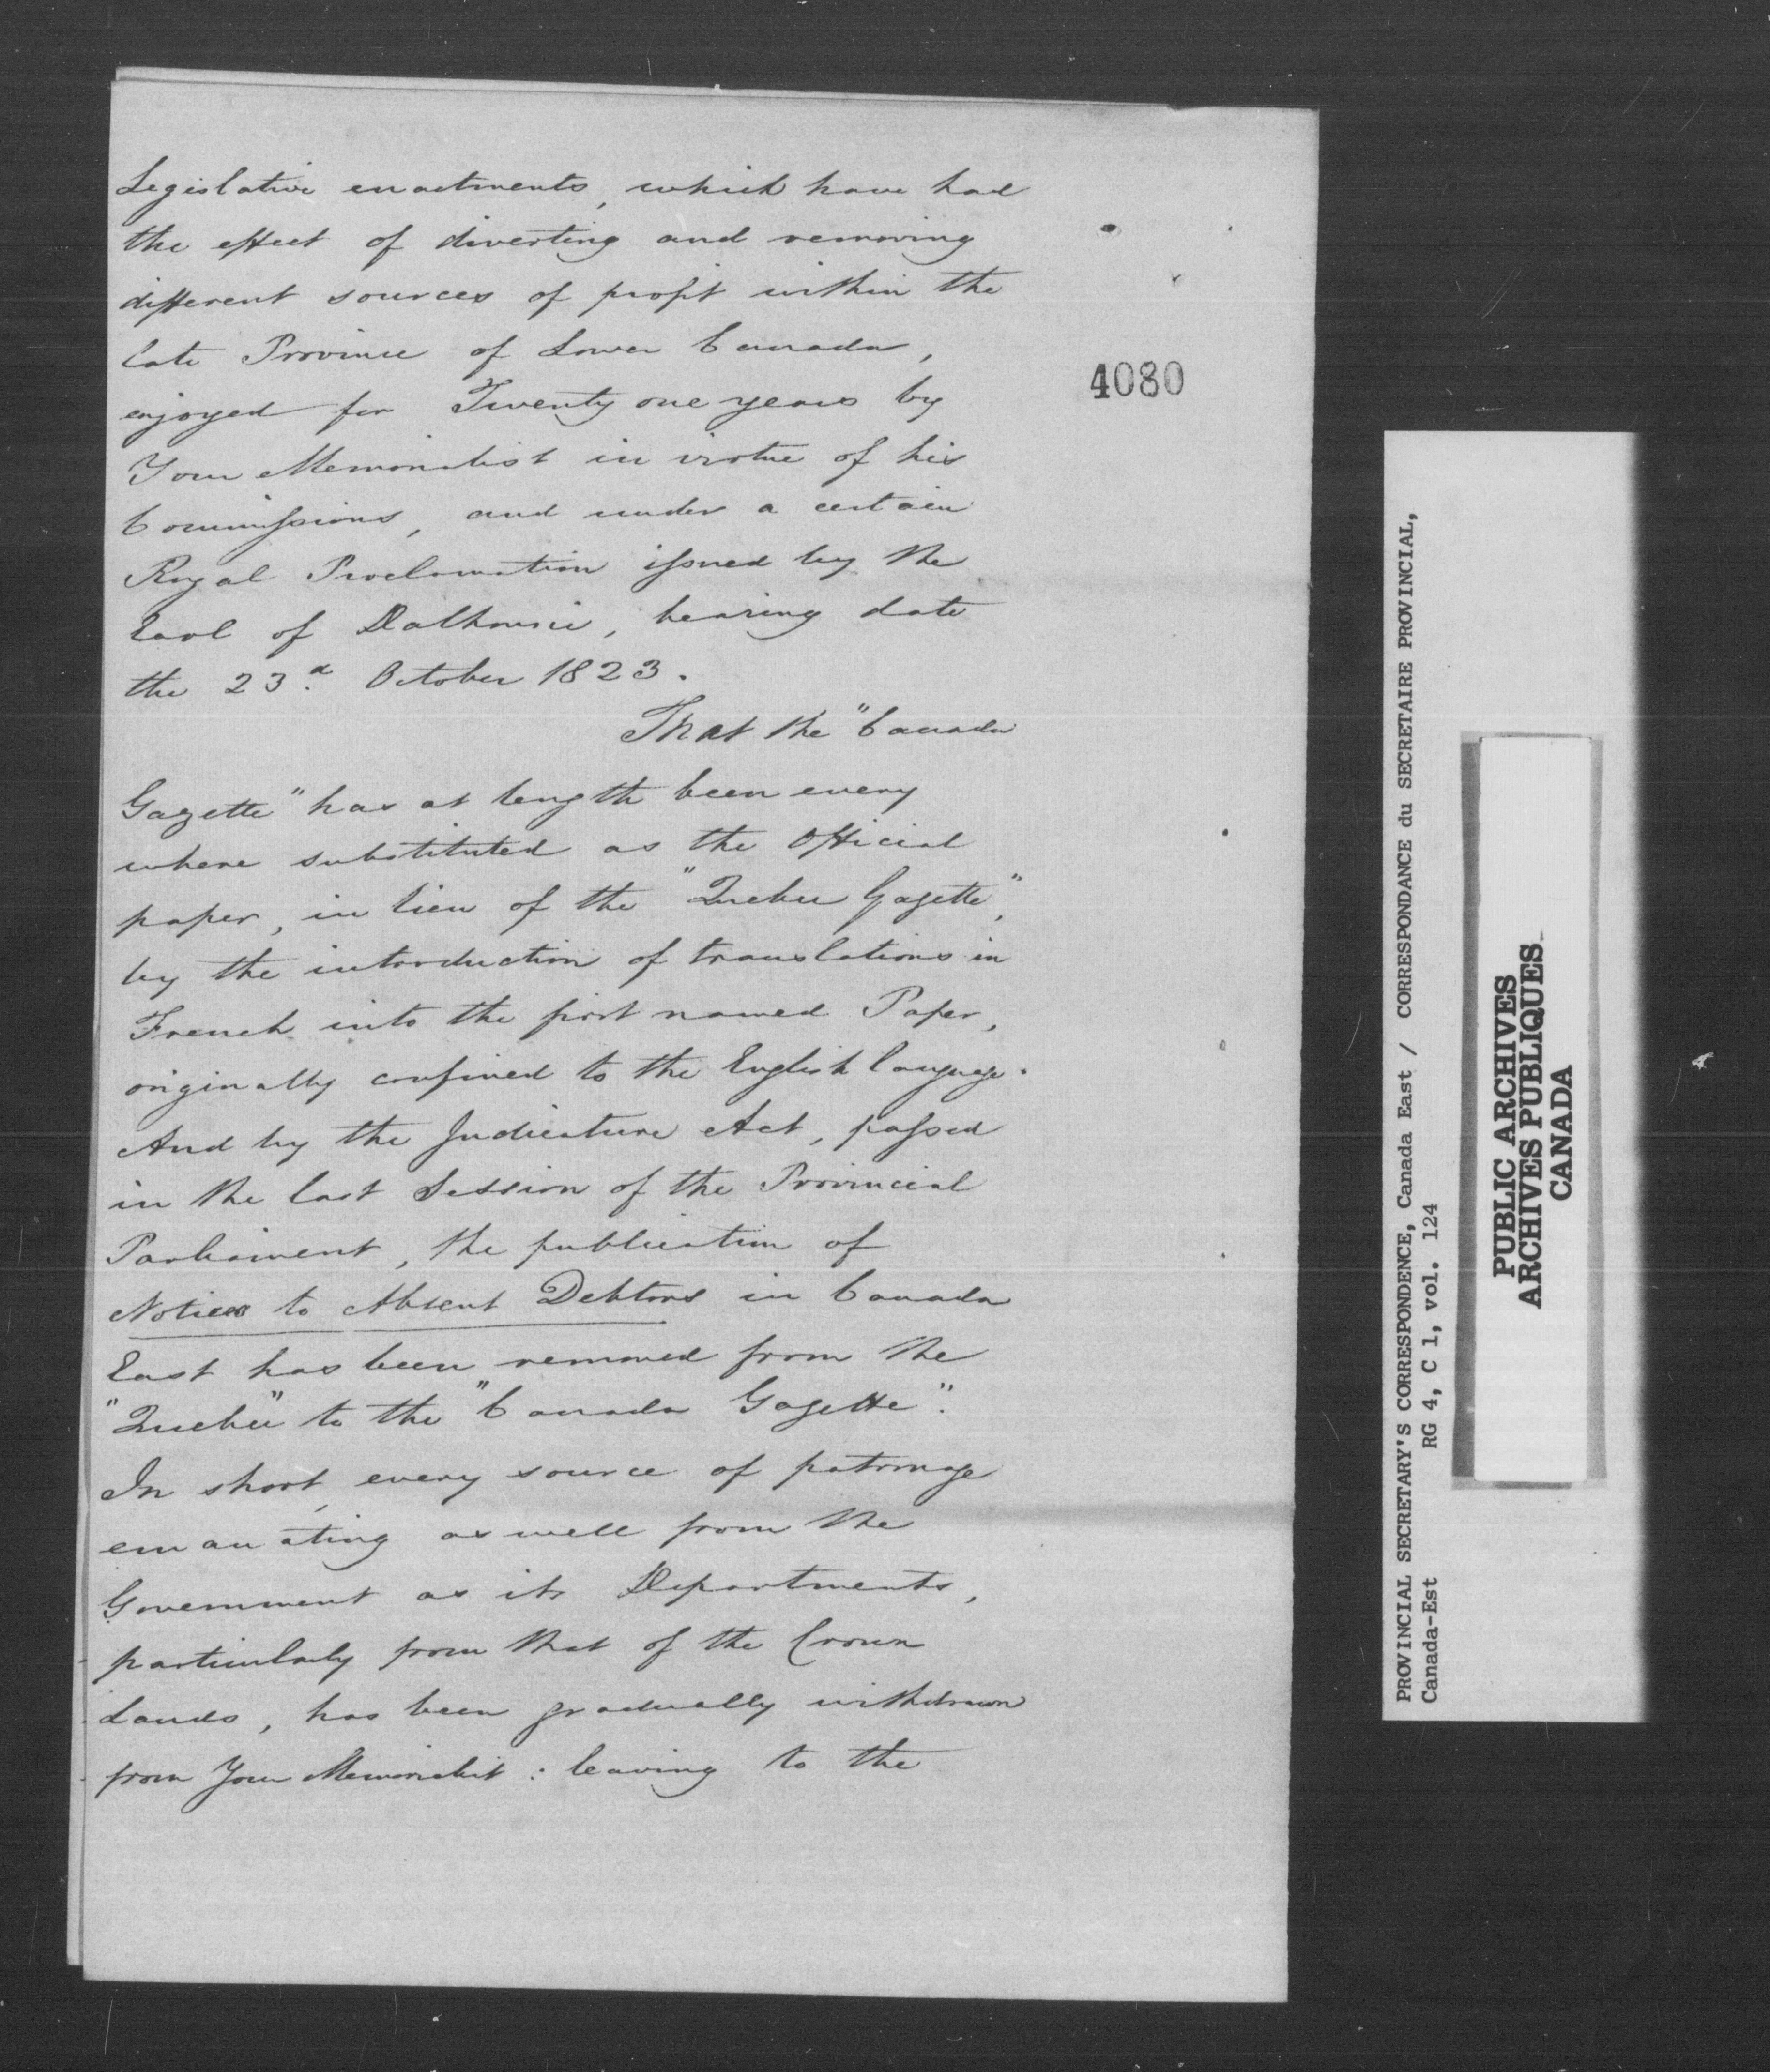 Legislative enactments, which have had
the effect of diverting and removing
different sources of profit within the
late Province of Lower Canada,
enjoyed for Twenty one years by
Your Memorialist in virtue of his
Commissions, and under a certain
Royal Proclamation issued by the
Earl of Dalhousie, bearing date
the 23.d October 1823.
That the "Canada
Gazette" has at length been every
where substituted as the Official
paper, in lieu of the "Quebec Gazette",
by the introduction of translations in
French into the first named Paper,
originally confined to the English language.
And by the Judicature Act, passed
in the last Session of the Provincial
Parliament, the publication of
Notices to Absent Debtors in Canada
East has been removed from the
"Quebec" to the "Canada Gazette".
In short, every source of patronage
emanating as well from the
Government as its Departments,
particularly from that of the Crown
Lands, has been gradually withdrawn
from Your Memorialist: leaving to the
4080
PROVINCIAL SECRETARY'S CORRESPONDENCE, Canada East / CORRESPONDANCE du SECRETAIRE PROVINCIAL,
Canada-Est RG 4, C 1, vol. 124
PUBLIC ARCHIVES
ARCHIVES PUBLIQUES
CANADA